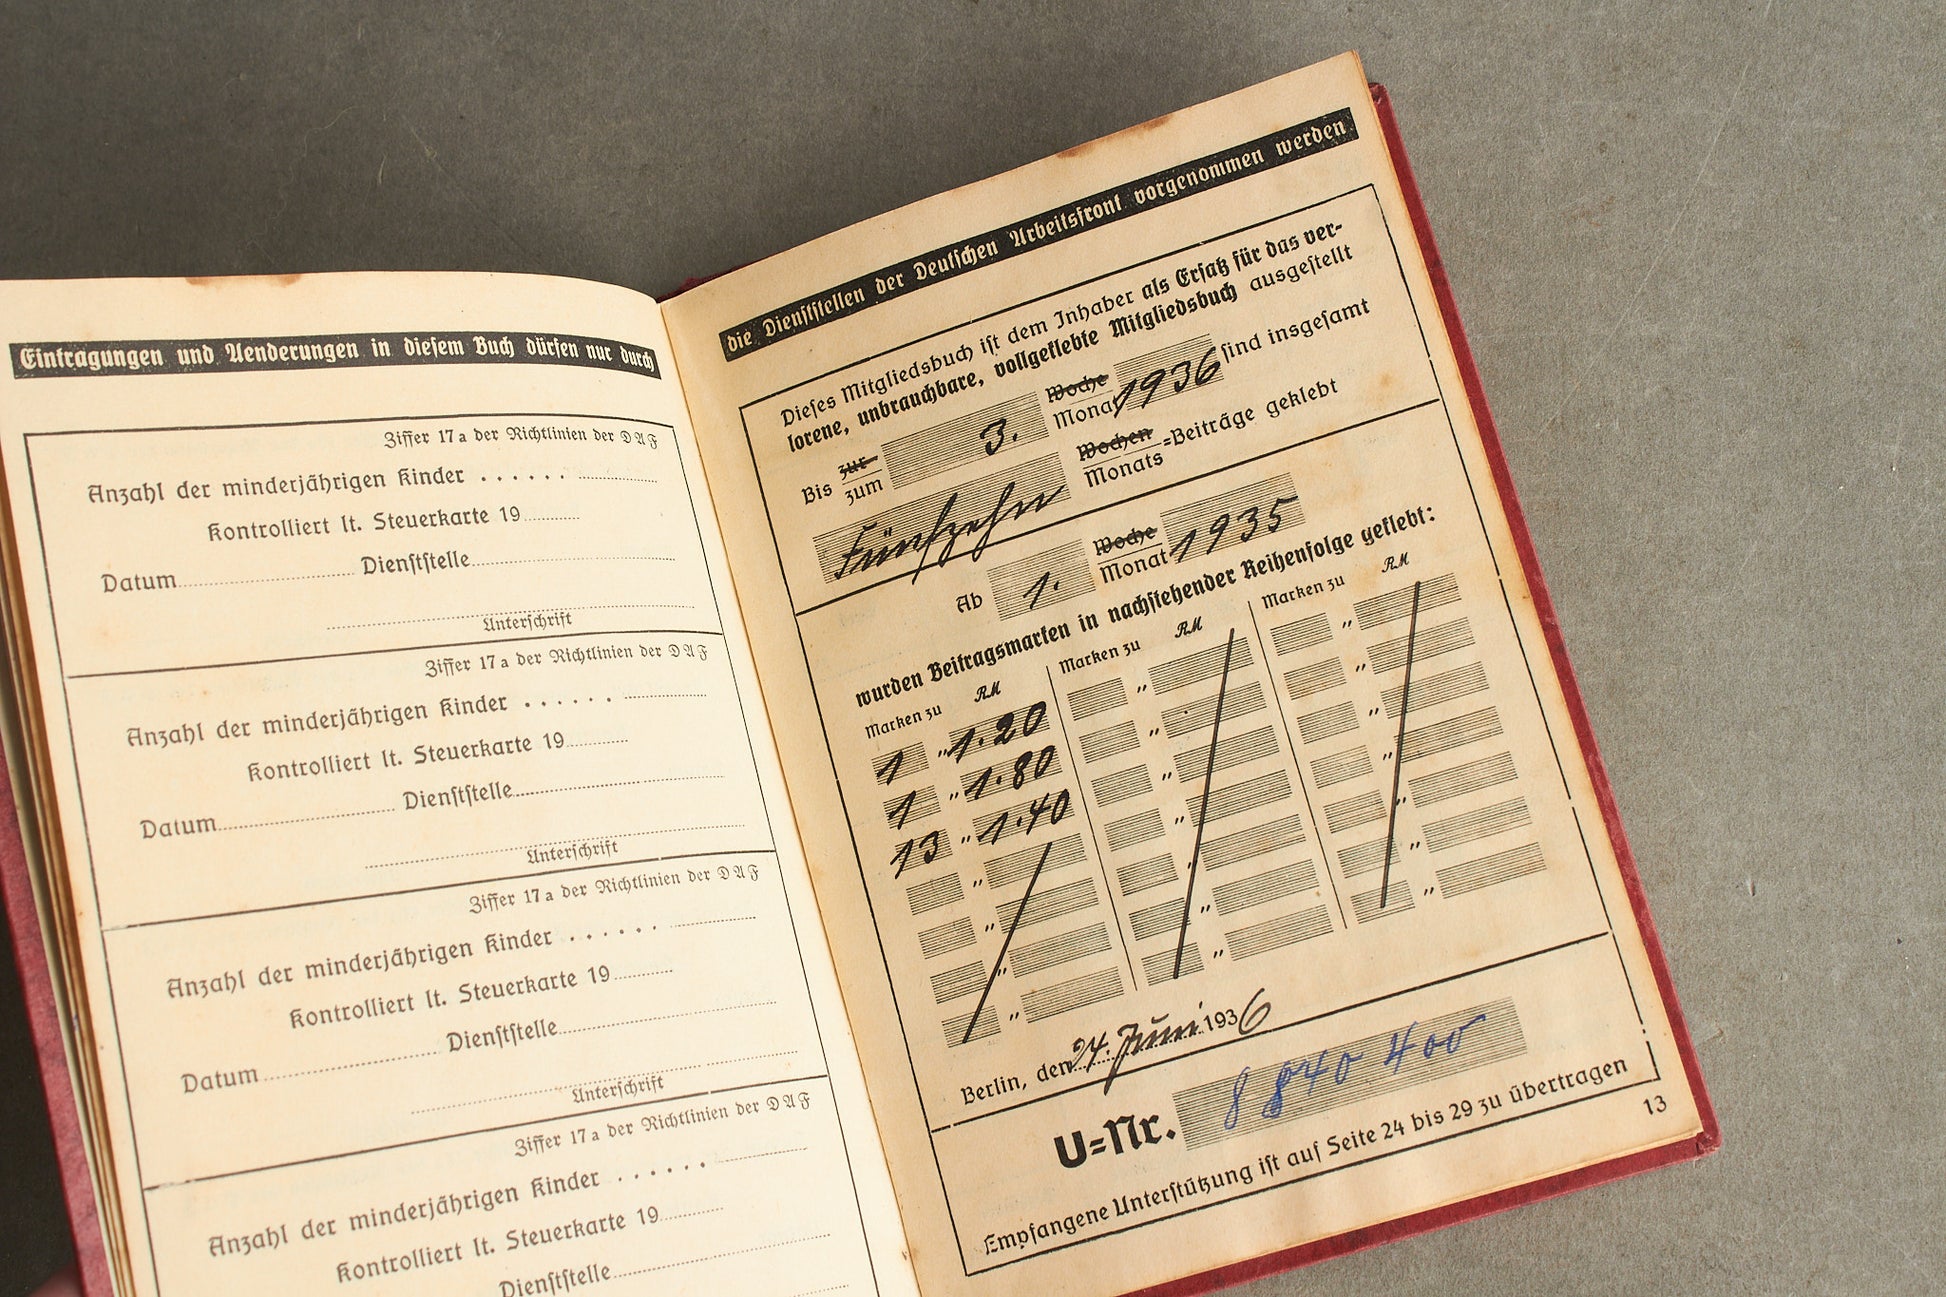 Eintragungen und Aenderungen in diesem Buch dürfen nur durch
Ziffer 17a der Richtlinien der DAF
Anzahl der minderjährigen Kinder . . . . . .
Kontrolliert lt. Steuerkarte 19
Datum Dienststelle
Unterschrift
Ziffer 17a der Richtlinien der DAF
Anzahl der minderjährigen Kinder . . . . . .
Kontrolliert lt. Steuerkarte 19
Datum Dienststelle
Unterschrift
Ziffer 17a der Richtlinien der DAF
Anzahl der minderjährigen Kinder . . . . . .
Kontrolliert lt. Steuerkarte 19
Datum Dienststelle
Unterschrift
Ziffer 17a der Richtlinien der DAF
Anzahl der minderjährigen Kinder . . . . . .
Kontrolliert lt. Steuerkarte 19
Dienststelle
die Dienststellen der Deutschen Arbeitsfront vorgenommen werden
Dieses Mitgliedsbuch ist dem Inhaber als Ersatz für das ver-
lorene, unbrauchbare, vollgeklebte Mitgliedsbuch ausgestellt
Bis zur zum 3. Woche Monat 1936 sind insgesamt
Fünfzehn Wochen Monats =Beiträge geklebt
Ab 1. Woche Monat 1935
wurden Beitragsmarken in nachstehender Reihenfolge geklebt:
Marken zu RM Marken zu RM Marken zu RM
1 „ 1.20 „ „
1 „ 1.80 „ „
13 „ 1.40 „ „
„ „ „
„ „ „
„ „ „
„ „ „
Berlin, den 24. Juni 1936
U=Nr. 8 840 400
Empfangene Unterstützung ist auf Seite 24 bis 29 zu übertragen
13